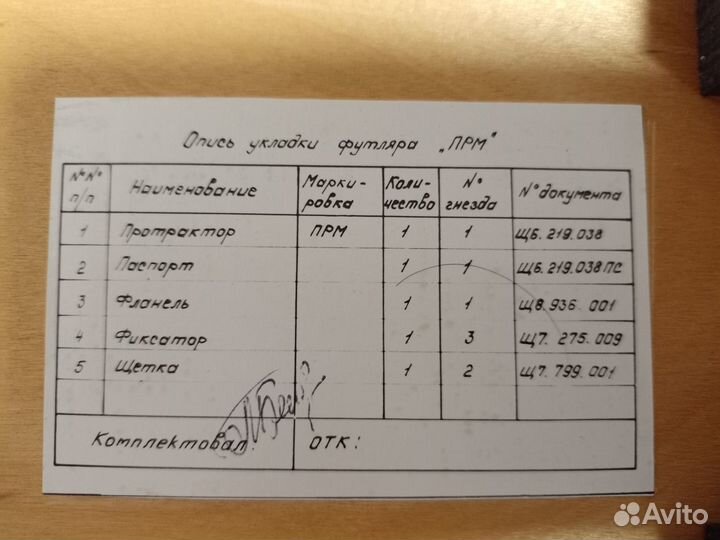 Опись укладки футляра „ПРМ"
№№ п/п Наименование Марки-ровка Коли-чество № гнезда № документа
1 Протрактор ПРМ 1 1 Щ6.219.038
2 Паспорт 1 1 Щ6.219.038ПС
3 Фланель 1 1 Щ8.936.001
4 Фиксатор 1 3 Щ7.275.009
5 Щетка 1 2 Щ7.799.001
Комплектовал: ОТК:
Avito